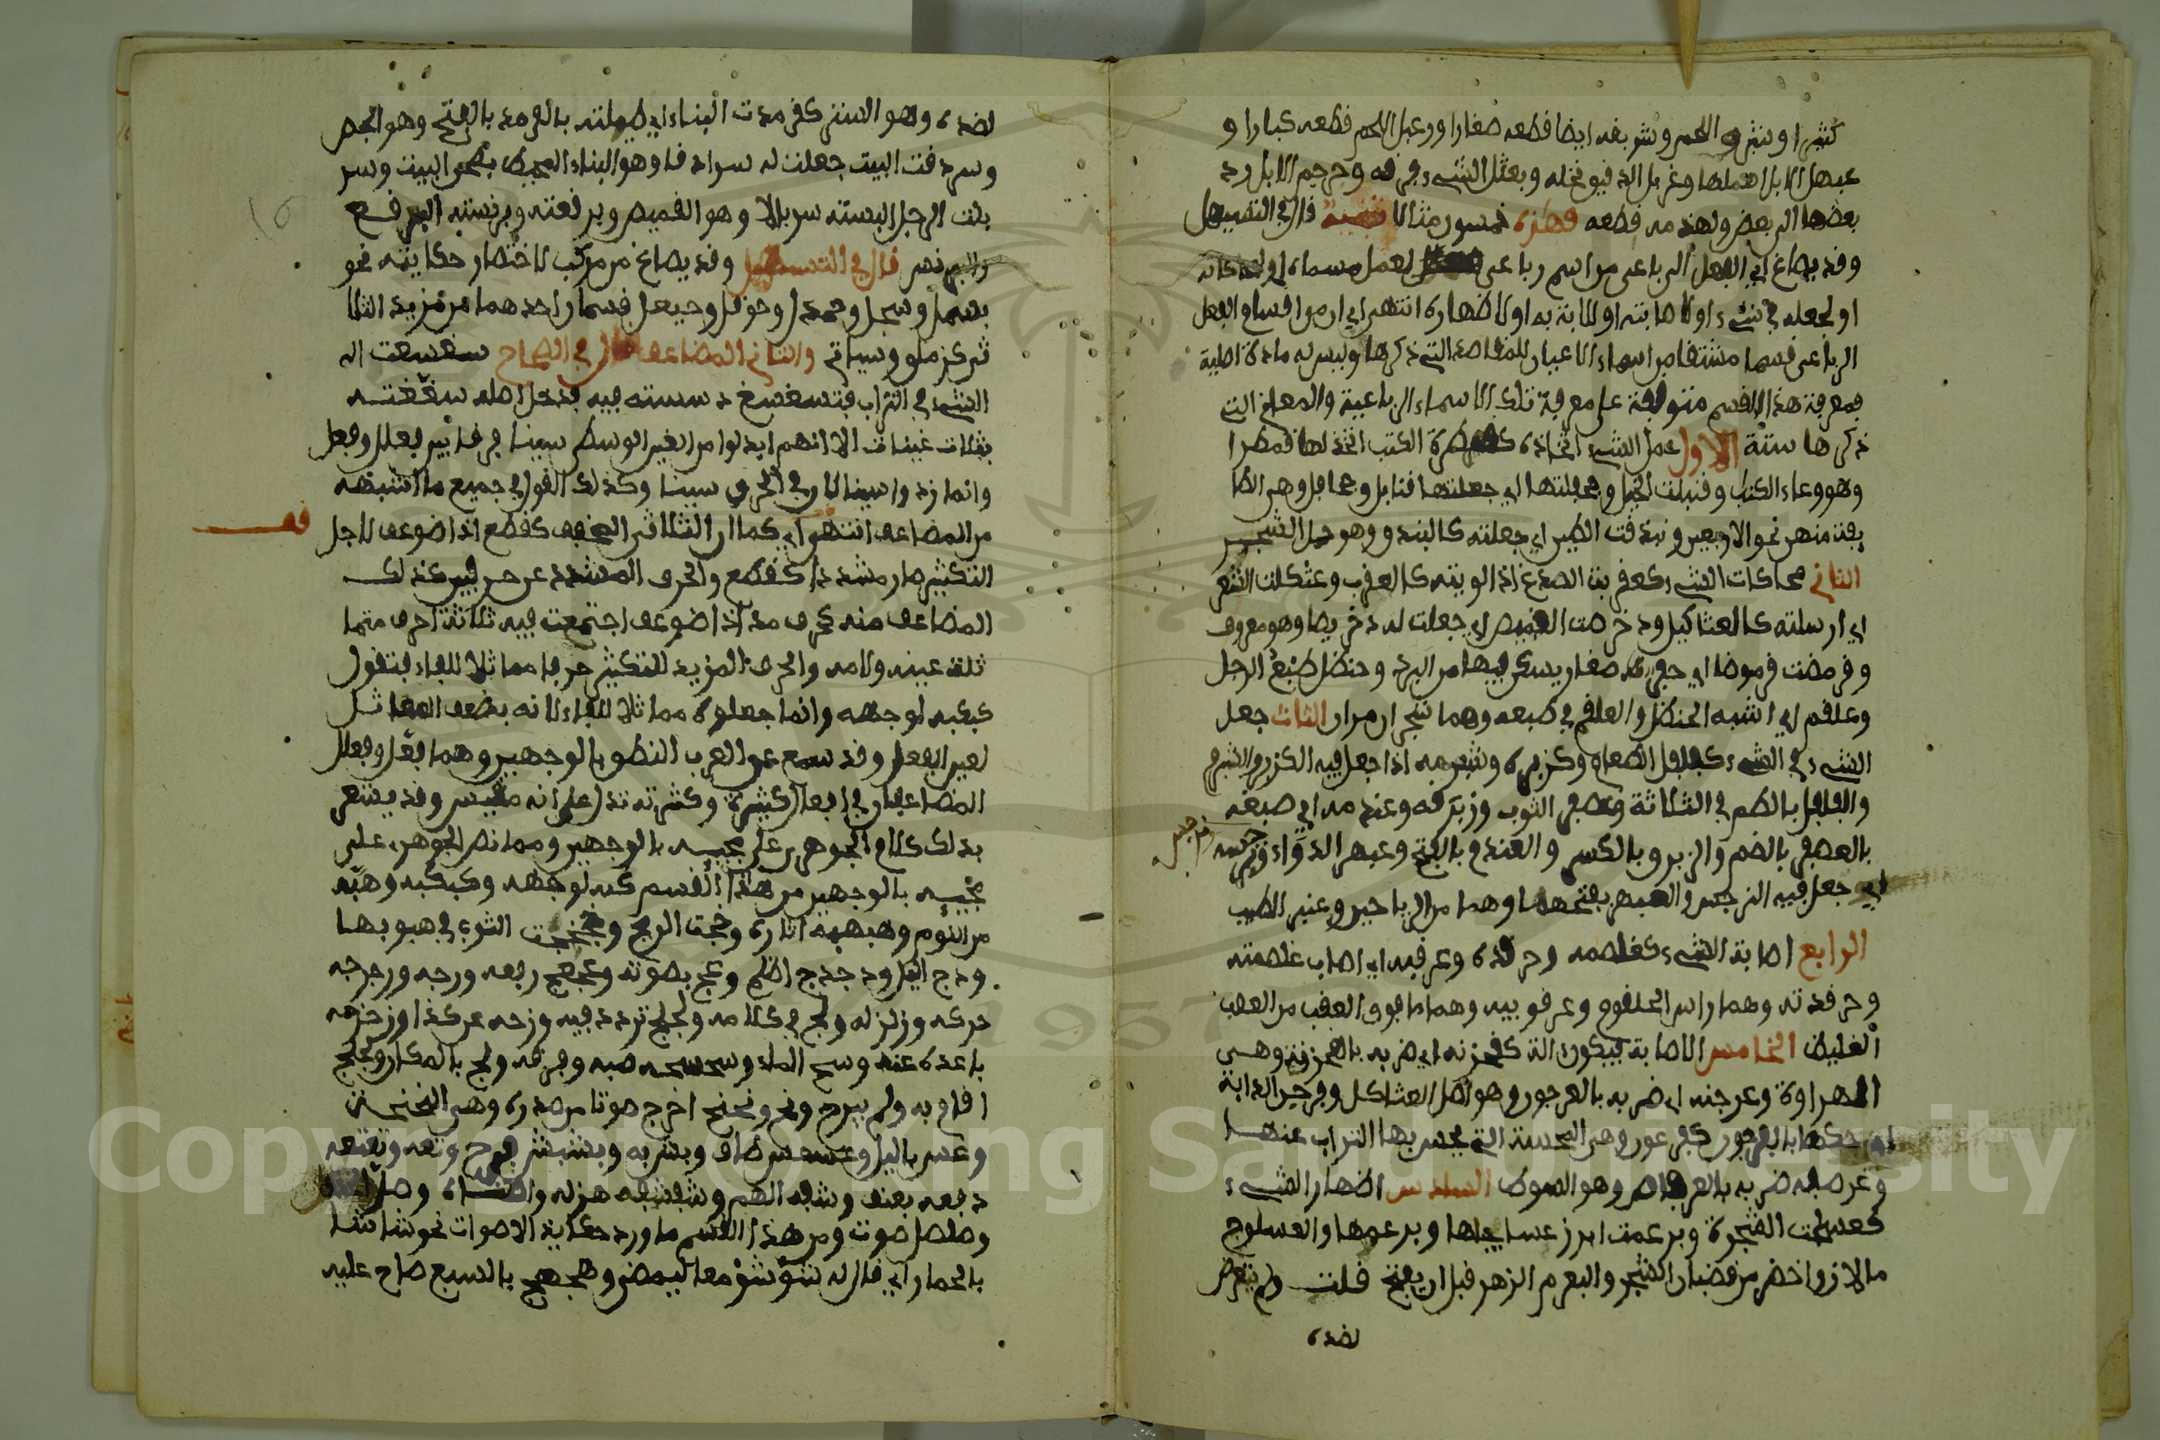 كثيرا وشرف اللحم وشريفه ايضا قطعه صغارا ورعبل اللحم قطعه كبارا و
عبهل الابل اهملها وغربل الدقيق نخله وبعثل الشيء فرقه وحرجم الابل رد
بعضها الى بعض ولهذمه قطعه فهذه خمسون مثالا تنبيه قال في التسهيل
وقد يصاغ اي الفعل الرباعي من اسم رباعي لعمل مسماه او لمحاكاته
او لجعله في شيء او لاصابته او لاصابة به او لاظهاره انتهى اي ان من اقسام الفعل
الرباعي قسما مشتقا من اسماء الاعيان للمقاصد التي ذكرها وليس له مادة اصلية
فمعرفة هذا القسم متوقفة على معرفة تلك الاسماء الرباعية والمعاني التي
ذكرها ستة الاول عمل الشيء اتخاذه كقمطرة الكتب اتخذ لها قمطرا
وهو وعاء الكتب وقنبلت الخيل وجحفلتها اي جعلتها قنابل وجحافل وهي الطا
يفة منهن نحو الاربعين وبندقت الطين اي جعلته كالبندق وهو حمل الشجر
الثاني محاكات الشيء كعقربت الصدغ اذا لويته كالعقرب وعثكلت الشعر
اي ارسلته كالعثاكيل ودخرصت القميص اي جعلت له دخريصا وهو معروف
وقرمصت قرموصا اي حفيرة صغار يسكن فيها من البرد وحنظل طبع الرجل
وعلقم اي اشبه الحنظل والعلقم في طبعه وهما شجران مران الثالث جعل
الشيء في الشيء كفلفل الطعام وكزبره وشبرمه اذا جعل فيه الكزبر والشبرم
والفلفل بالضم في الثلاثة وعصفر الثوب وزبرقه وعندمه اي صبغه
بالعصفر بالضم والزبرق بالكسر والعندم بالفتح وعبهر الدواء ونرجسه
نرجس
اي جعل فيه النرجس والعبهر بفتحهما وهما من الرياحين وعنبر الطيب
الرابع اصابة الشيء كغلصمه وحرقده وعرقبه اي اصاب غلصمته
وحرقدته وهما راس الحلقوم وعرقوبيه وهما ما فوق العقب من العصب
الغليظ الخامس الاصابة فيكون الة كقحزنه اي ضربه بالقحزنة وهي
الهراوة وعرجنه اي ضربه بالعرجون وهو اصل العثاكل وفرجن الدابة
اي حكها بالفرجون كفرعون وهي المحسة التي يحس بها التراب عنها
وعرفصه ضربه بالعرفاص وهو السوط السادس اظهار الشيء
كعسلجت الشجرة وبرعمت ابرز عساليجها وبرعومها والعسلوج
ما لان واخضر من قضبان الشجر والبرعم الزهر قبل ان يفتح قلت ولم يتعرض
لضده
لضده وهو الستر كقرمدت البناء اي طليته بالقرمد بالفتح وهو الجص
وسردقت البيت جعلت له سرادقا وهو البناء المحيط بصحن البيت وسر
بلت الرجل البسته سربالا وهو القميص وبرقعته وبرنسته البرقع
والبرنس قال في التسهيل وقد يصاغ من مركب لاختصار حكايته نحو
بسمل وسبحل وحمدل وحوقل وحيعل قسمان احدهما من مزيد الثلا
ثي كزملق وسياتي والثاني المضاعف قال في الصحاح سغسغت اله
الشيء في التراب فتسغسغ دسسته فيه فدخل اصله سغغته
بثلاث غينات الا انهم ابدلوا من الغين الوسطى سينا فرقا بين فعلل وفعل
وانما زادوا سينا لان في الحرف سينا وكذلك القول في جميع ما اشبهه
من المضاعف انتهى اي كما ان الثلاثي المضعف كقطع اذا ضوعف لاجل
قف
التكثير صار مشددا كقطع والحرف المشدد عن حرفين كذلك
المضاعف منه كحرف مد اذا ضوعف اجتمعت فيه ثلاثة احرف متما
ثلة عينه ولامه والحرف المزيد للتكثير حرفا مماثلا للفاء فتقول
كبكبه لوجهه وانما جعلوه مماثلا للفاء لانه بضعف المماثل
لعين الفعل وقد سمع عن العرب النطق بالوجهين وهما فعل وفعلل
المضاعفان في افعال كثيرة وكثرته تدل على انه مقيس وقد يشعر
بذلك كلام الجوهري على مجيئه بالوجهين ومما نص الجوهري على
مجيئه بالوجهين من هذا القسم كبه لوجهه وكبكبه وهبه
من النوم وهبهبه اثاره وخجت الريح وخجخجت التوت في هبوبها
ودج الليل ودجدج اظلم وعج بصوته وعجعج رفعه ورجه ورجرجه
حركه وزلزله ولج في كلامه ولجلج تردد فيه وزحه عن كذا وزحزحه
باعده عنه وسح الماء وسحسحه صبه وفرقه ولح بالمكان ولحلح
اقام به ولم يبرح ونح ونحنح اخرج صوتا من صدره وهي النحنحة
وعس بالليل وعسعس طاف وبش به وبشبش فرح وتعه وتعتعه
دفعه بعنف وشفه الهم وشفشفه هزله وصل
وصلصل صوت ومن هذا القسم ما ورد حكاية الاصوات نحو شاشا
بالحمار اي قال له شؤشؤ معا ليمضي وهجهج بالسبع صاح عليه
Copyright © King Saud University
1957